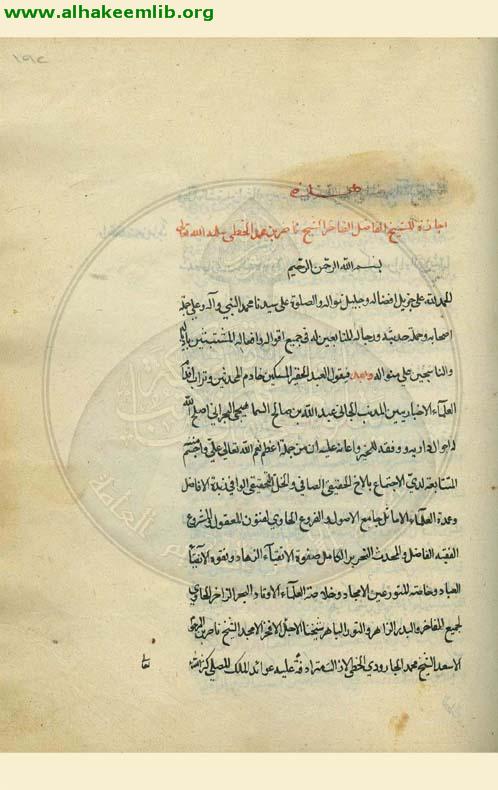 www.alhakeemlib.org
١٩٤
اجازة للشيخ الفاضل الفاخر الشيخ ناصر بن محمد الخطي سلمه الله تعالى
بسم الله الرحمن الرحيم
الحمد لله على جزيل افضاله وجليل نواله والصلوة على سيدنا محمد النبي وآله وعلى جلة
اصحابه وحملة حديثه ورجاله التابعين له في جميع اقواله وافعاله المتشبثين باذياله
والناسجين على منواله وبعد فيقول العبد الحقير المسكين خادم المحدثين وتراب اقدام
العلماء الاخباريين المذنب الجاني عبد الله بن صالح السماهيجي البحراني اصلح الله
له احوال داريه ووفقه للخير واعانه عليه ان من جملة اعظم نعم الله تعالى علي
المتتابعة لدي الاجتماع بالاخ الحقيقي الصافي والخل التحقيقي الوافي زبدة الافاضل
وعمدة العلماء الاماثل جامع الاصول والفروع الحاوي لفنون المعقول والمشروع
الفقيه الفاضل والمحدث النحرير الكامل صفوة الاتقياء الزهاد ونقوة الانقياء
العباد وخاتمة المتورعين الامجاد وخلاصة العلماء الاوتاد البحر الزاخر الحاوي
لجميع المفاخر والبدر الزاهر والنور الباهر شيخنا الاجل الافخر الامجد الشيخ ناصر بن المرحوم
الاسعد الشيخ محمد الجارودي الخطي لا زالت مترادفة عليه عوائد الملك